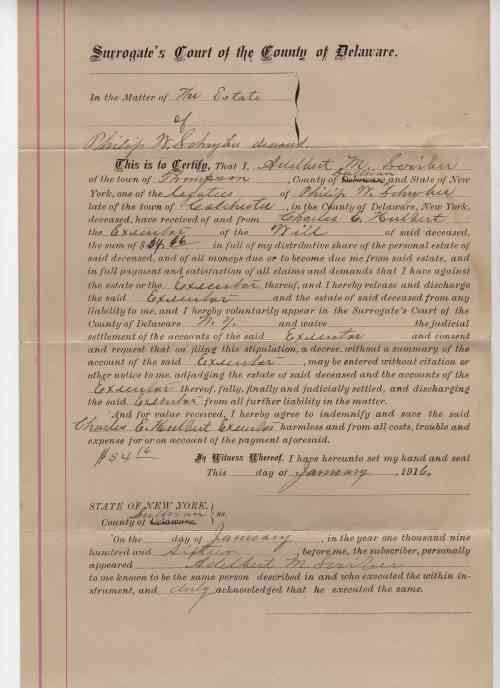 Surrogate's Court of the County of Delaware.
In the Matter of The Estate
of
Philip W. Schuyler deceased.
This is to Certify, That I, Adelbert M. Scriber
of the town of Thompson, County of Sullivan Delaware and State of New
York, one of the legatees of Philip W. Schuyler
late of the town of Colchester, in the County of Delaware, New York,
deceased, have received of and from Charles E. Hulbert
the Executor of the Will of said deceased,
the sum of $54.16 in full of my distributive share of the personal estate of
said deceased, and of all moneys due or to become due me from said estate, and
in full payment and satisfaction of all claims and demands that I have against
the estate or the Executor thereof, and I hereby release and discharge
the said Executor and the estate of said deceased from any
liability to me, and I hereby voluntarily appear in the Surrogate's Court of the
County of Delaware N. Y. and waive the judicial
settlement of the accounts of the said Executor and consent
and request that on filing this stipulation, a decree, without a summary of the
account of the said Executor, may be entered without citation or
other notice to me, adjudging the estate of said deceased and the accounts of the
Executor thereof, fully, finally and judicially settled, and discharging
the said Executor from all further liability in the matter.
And for value received, I hereby agree to indemnify and save the said
Charles E. Hulbert Executor harmless and from all costs, trouble and
expense for or on account of the payment aforesaid.
$54 16
In Witness Whereof, I have hereunto set my hand and seal
This day of January, 1916.
STATE OF NEW YORK,
County of Sullivan Delaware ss.
On the day of January, in the year one thousand nine
hundred and sixteen, before me, the subscriber, personally
appeared Adelbert M. Scriber
to me known to be the same person described in and who executed the within in-
strument, and duly acknowledged that he executed the same.